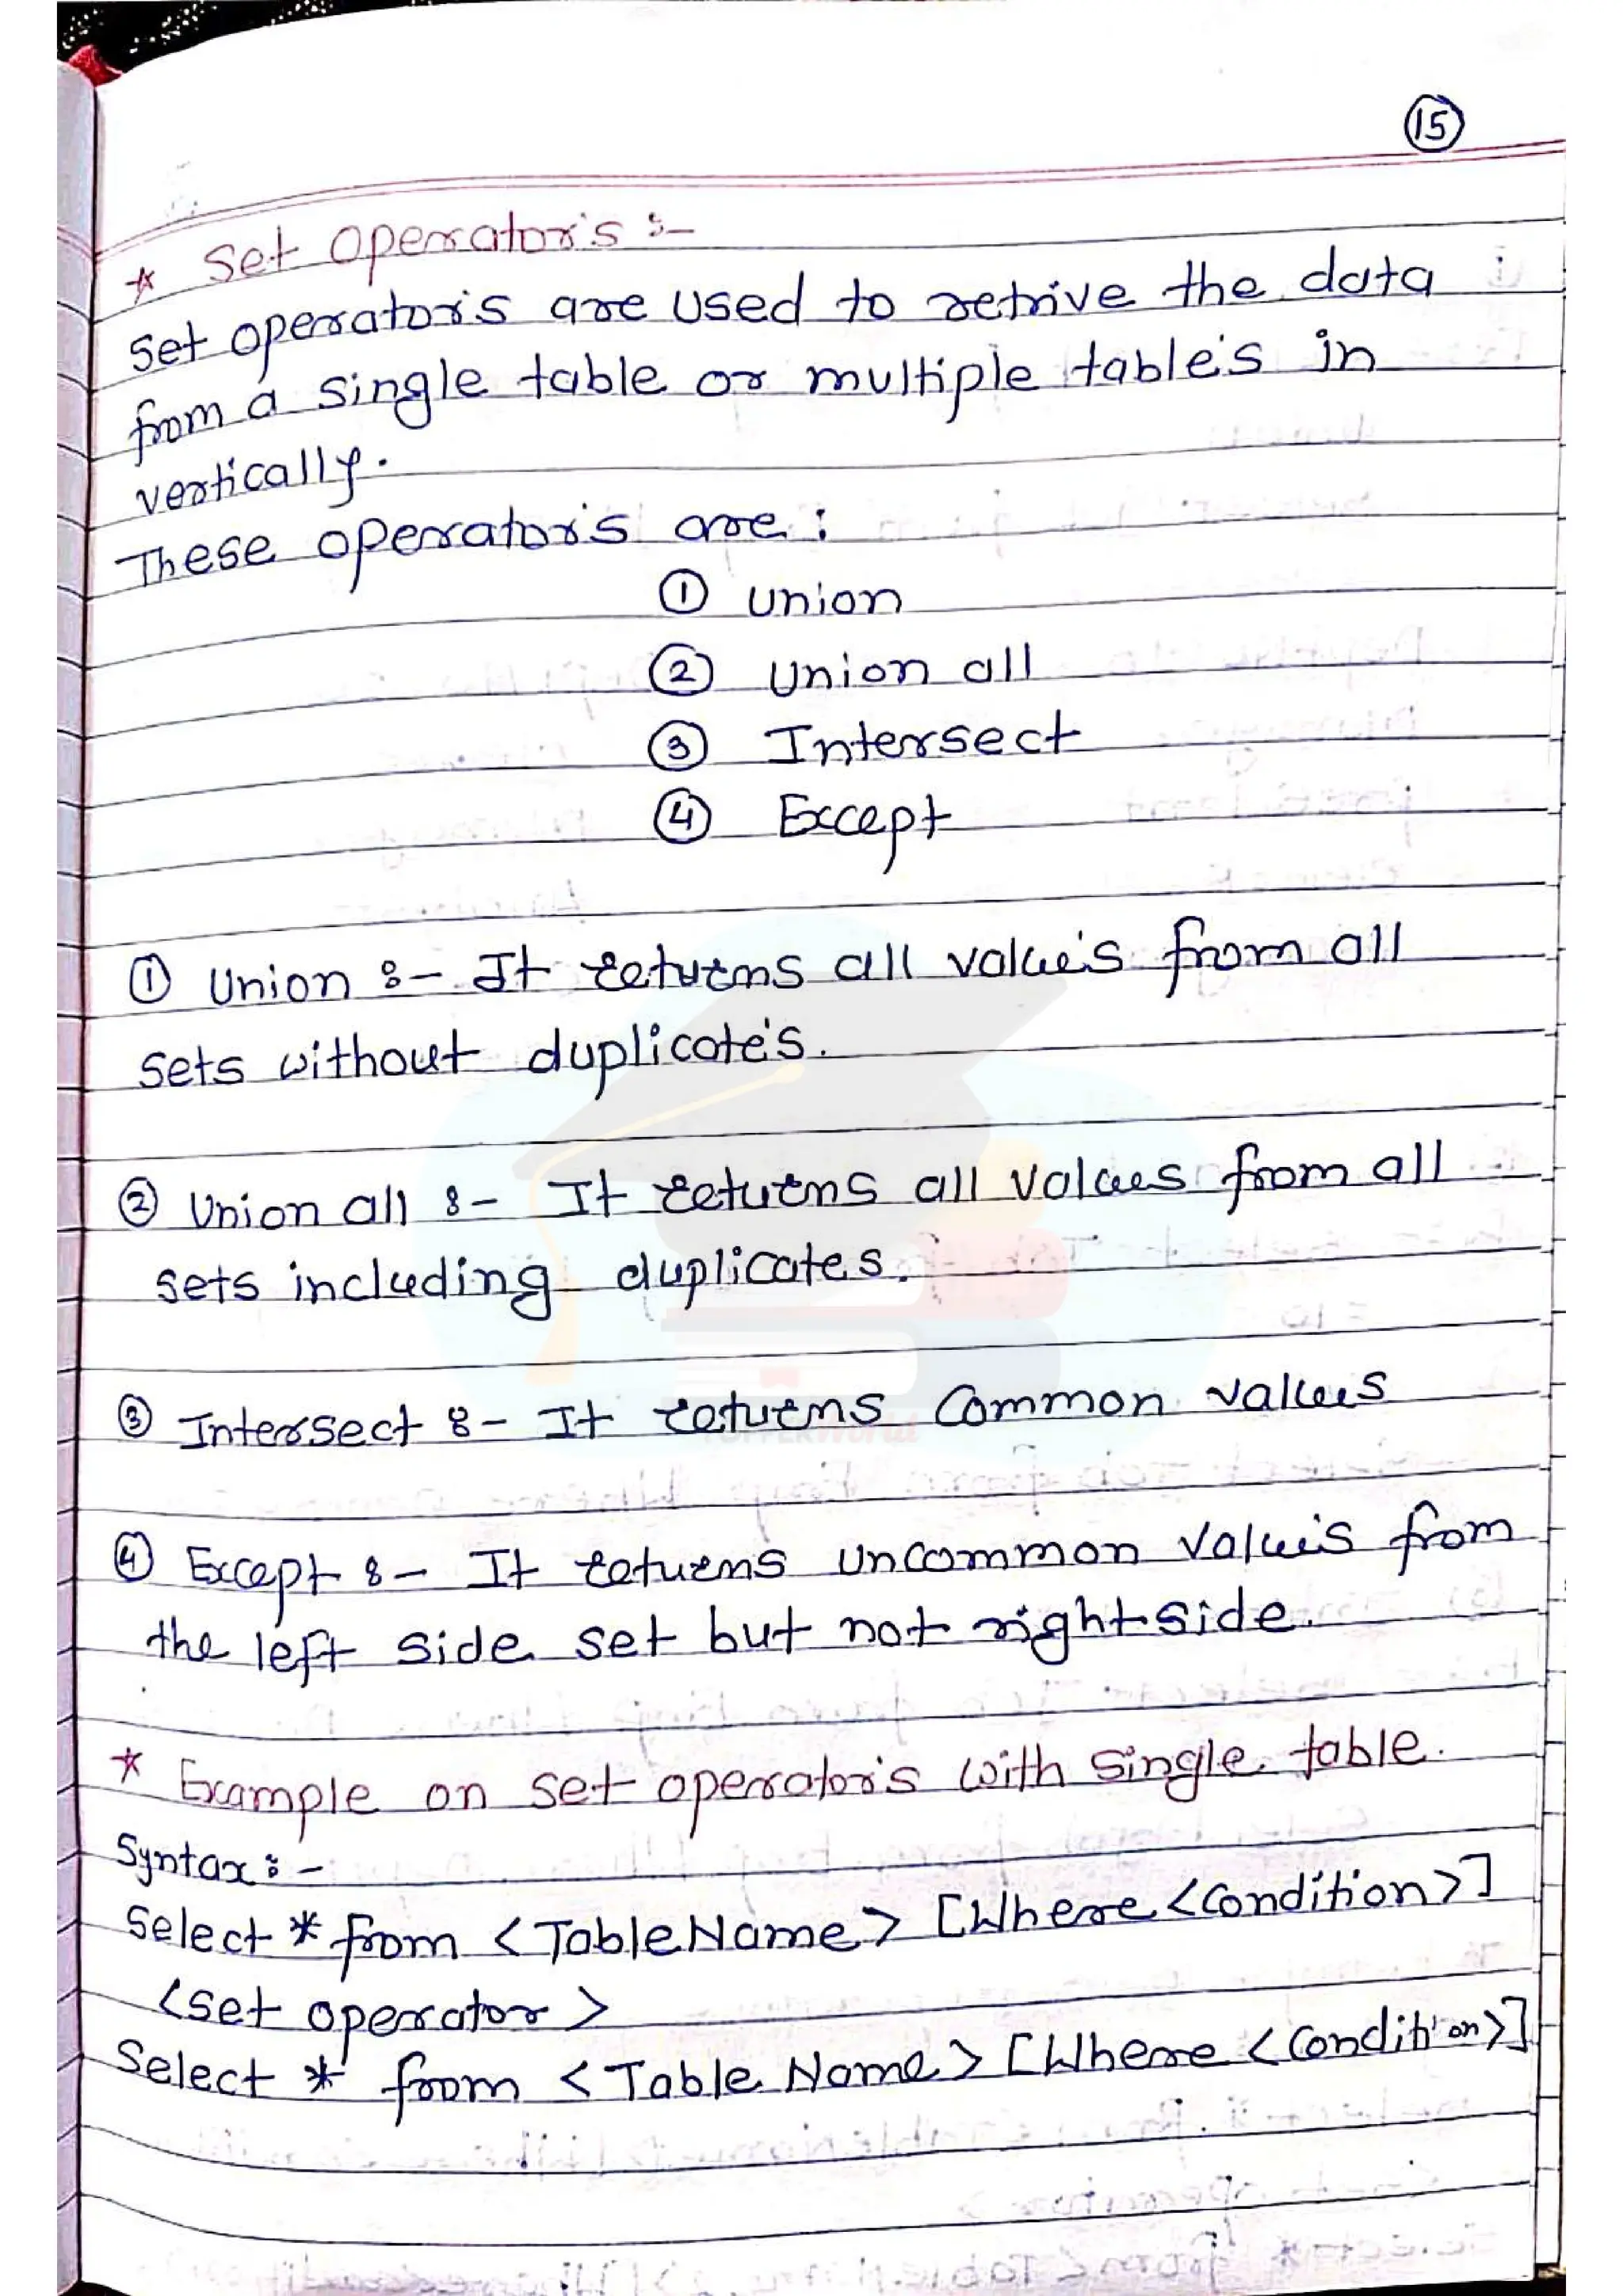 15
* Set Operator's :-
Set operator's are used to retrive the data
from a single table or multiple table's in
vertically.
These operator's are :
① Union
② Union all
③ Intersect
④ Except
① Union :- It returns all value's from all
sets without duplicate's.
② Union all :- It returns all values from all
sets including duplicates.
③ Intersect :- It returns Common values
TOPPERWorld
④ Except :- It returns uncommon value's from
the left side set but not right side.
* Example on set operator's with single table.
Syntax :-
Select * from <TableName> [Where <Condition>]
<set operator>
Select * from <Table Name> [Where <Condition>]